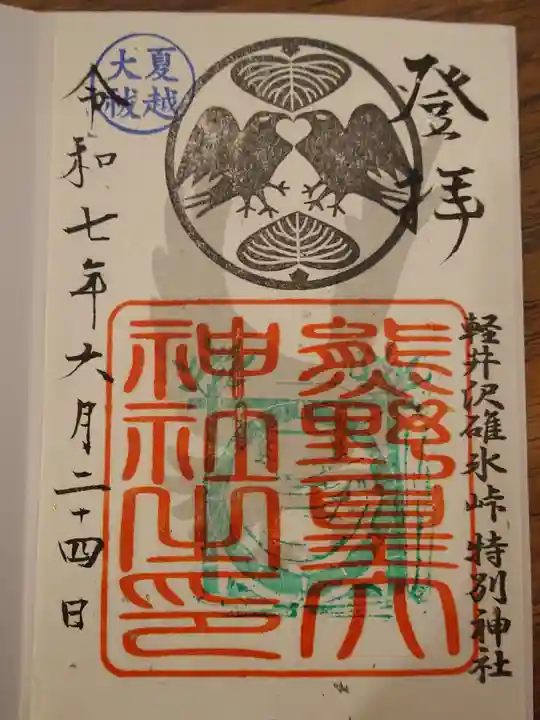 登拝
軽井沢碓氷峠 特別神社
熊野皇大
神社之印
夏越
大祓
令和七年六月二十四日